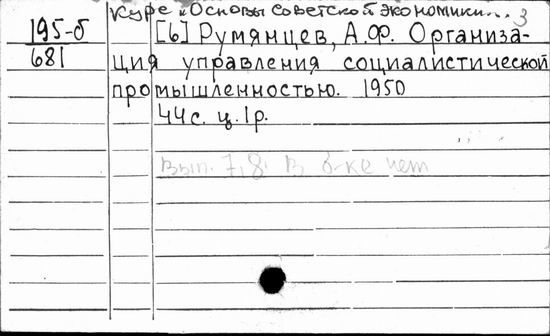 Курс „Основы советской экономики... 3
195-б [6] Румянцев, А.Ф. Организа-
681 ция управления социалистической
промышленностью. 1950
44с. ц. 1р.
Вып. 7,8 в б-ке нет